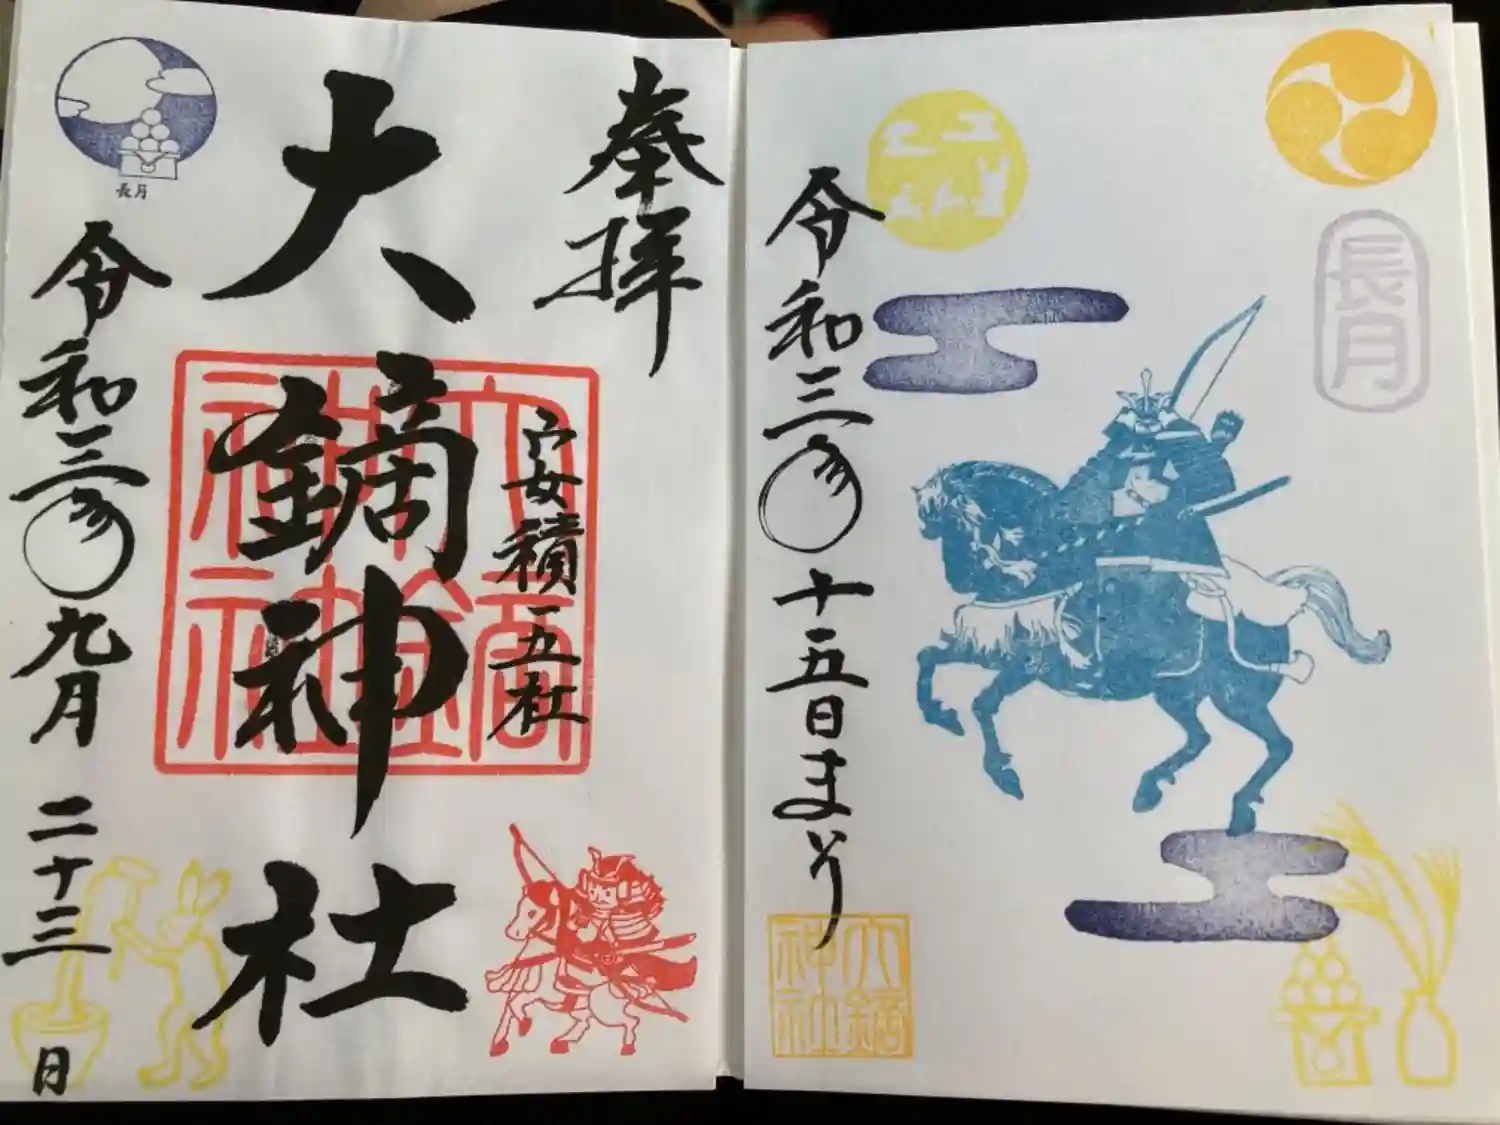 奉拝
安積五社
大鏑神社
大鏑神社
令和三年九月二十三日
長月
長月
令和三年十五日まいり
大鏑神社